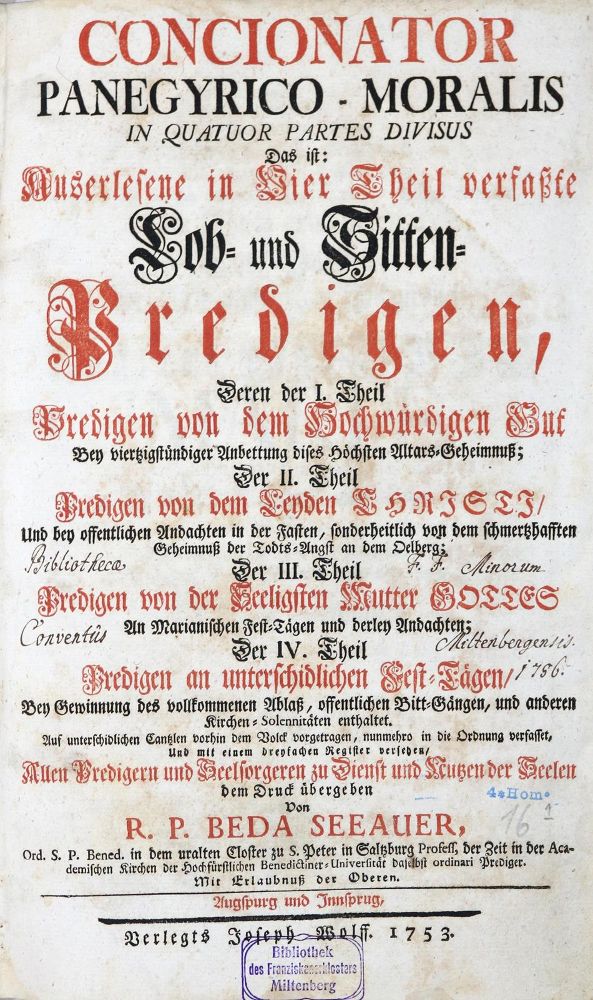 CONCIONATOR
PANEGYRICO - MORALIS
IN QUATUOR PARTES DIVISUS
Das ist:
Auserlesene in Vier Theil verfaßte
Lob- und Sitten-
Predigen,
Deren der I. Theil
Predigen von dem Hochwürdigen Gut
Bey viertzigstündiger Anbettung dises Höchsten Altars-Geheimnuß;
Der II. Theil
Predigen von dem Leyden CHRISTI/
Und bey offentlichen Andachten in der Fasten, sonderheitlich von dem schmertzhafften
Geheimnuß der Todts-Angst an dem Oelberg;
Bibliothecæ F. F. Minorum
Der III. Theil
Predigen von der Seeligsten Mutter GOTTES
An Marianischen Fest-Tägen und derley Andachten;
Conventûs Miltenbergensis.
Der IV. Theil
Predigen an unterschidlichen Fest-Tägen/ 1786.
Bey Gewinnung des vollkommenen Ablaß, offentlichen Bitt-Gängen, und anderen
Kirchen-Solennitäten enthaltet.
Auf unterschidlichen Cantzlen vorhin dem Volck vorgetragen, nunmehro in die Ordnung verfasset,
Und mit einem dreyfachen Register versehen/
Allen Predigern und Seelsorgeren zu Dienst und Nutzen der Seelen
dem Druck übergeben
4° Hom.
Von
16 1
R. P. BEDA SEEAUER,
Ord. S. P. Bened. in dem uralten Closter zu S. Peter in Saltzburg Profess, der Zeit in der Aca-
demischen Kirchen der Hochfürstlichen Benedictiner-Universität daselbst ordinari Prediger.
Mit Erlaubnuß der Oberen.
Augspurg und Innsprug,
Verlegts Joseph Wolff. 1753.
Bibliothek
des Franziskanerklosters
Miltenberg